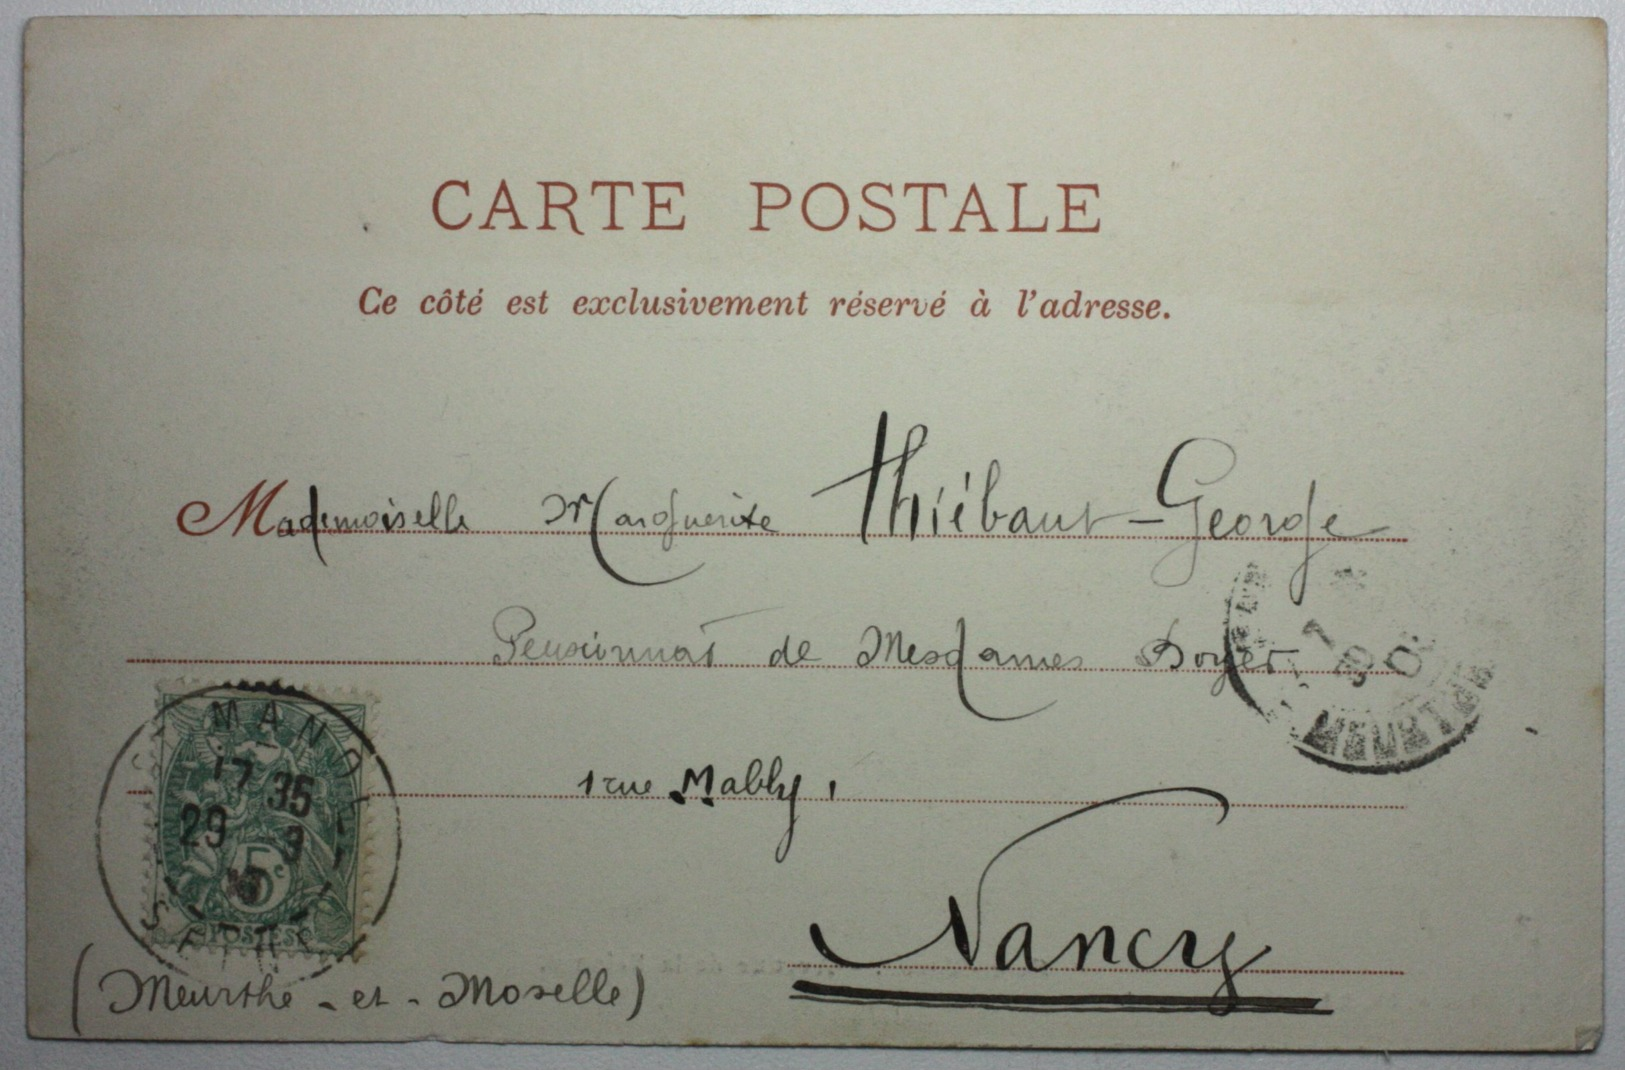 CARTE POSTALE
Ce côté est exclusivement réservé à l'adresse.
Mademoiselle Marguerite Thiébaut-George
Pensionnat de Mesdames Boyer
1 rue Mably,
Nancy
(Meurthe-et-Moselle)
17 35
29 3
5c
POSTES
MEURTHE